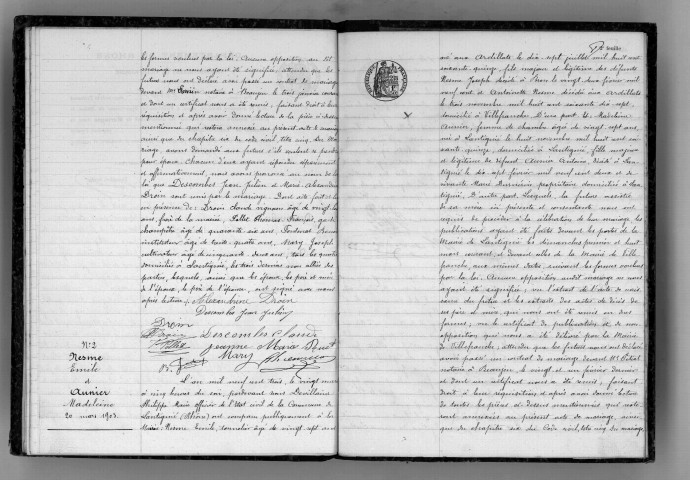 les formes voulues par la loi. Aucune opposition au dit
mariage ne nous ayant été signifiée, attendu que les
futurs nous ont déclaré avoir passé un contrat de mariage
devant notaire à Beaujeu le trois janvier
et dont un certificat nous a été remis, faisant droit à leur
réquisition et après avoir donné lecture de la pièce ci-dessus
mentionnée qui restera annexée au présent acte de mariage
ainsi que du chapitre six du code civil, titre cinq, du
mariage, avons demandé aux futurs s'ils veulent se prendre
pour époux chacun d'eux ayant répondu séparément
et affirmativement, nous avons prononcé au nom de la
loi que Descombes Jean Julien et Marie Alexandrine
Droin sont unis par le mariage. Dont acte fait et
en présence de: Droin Claude âgé de vingt
ans, frère de la mariée, Pollet Thomas François, garde
champêtre âgé de quarante six ans,
instituteur âgé de trente quatre ans, Mary Joseph
cultivateur âgé de cinquante deux ans, tous les quatre
domiciliés à Lantignié, les trois derniers non alliés des
parties, lesquels, ainsi que les époux, le père et mère
de l'époux, le père de l'épouse, ont signé avec nous
après lecture. Alexandrine Droin
Descombes Jean Julien
Droin
Descombes Claude
Jeanne Marie
Mary
N° 2
Resme
Emile
et
Aunier
Madeleine
20 mars 1903.
L'an mil neuf cent trois, le vingt mars
à cinq heures du soir, pardevant nous Devillaine
Philippe Marie officier de l'état civil de la Commune de
Lantignié (Rhône) ont comparu publiquement à la
Mairie: Resme Emile, tonnelier âgé de vingt sept ans
feuille
né aux Ardillats le dix sept juillet mil huit cent
soixante quinze, fils majeur et légitime des défunts
Resme Joseph décédé à le vingt deux février mil
neuf cent et Antoinette décédée aux Ardillats
le trois novembre mil huit cent soixante dix sept,
domicilié à Villefranche. D'une part Et Madeleine
Aunier, femme de chambre âgée de vingt sept ans,
née à Lantignié le huit novembre mil huit cent soixante
quinze, domiciliée à Lantignié, fille majeure
et légitime de défunt Aunier Antoine, décédé à Lantignié
le dix sept février mil neuf cent deux et de
vivante Marie propriétaire domiciliée à Lantignié.
D'autre part. Lesquels, la future assistée
de sa mère ici présente et consentante, nous ont
requis de procéder à la célébration de leur mariage, les
publications ayant été faites devant les portes de la
Mairie de Lantignié les dimanches premier et huit
mars courant et devant celles de la Mairie de Villefranche,
aux mêmes dates, suivant les formes voulues
par la loi. Aucune opposition audit mariage ne nous
ayant été signifiée, vu l'extrait de l'acte de naissance
du futur et les extraits des actes de décès de
ses père et mère, qui nous ont été remis en due
forme, vu le certificat de publications et de non
opposition qui nous a été délivré par la Mairie
de Villefranche, attendu que les futurs nous ont déclaré
avoir passé un contrat de mariage devant Me
notaire à Beaujeu, le vingt et un février dernier
et dont un certificat nous a été remis, faisant
droit à leur réquisition et après avoir donné lecture
de toutes les pièces ci-dessus mentionnées qui resteront
annexées au présent acte de mariage, ainsi
que du chapitre six du Code civil, titre cinq du mariage